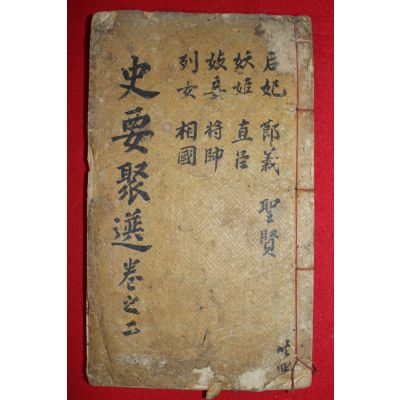 后妃 節義 聖賢
妖姬 直臣
将帥
列女 相國
史要聚選 卷之二
共四